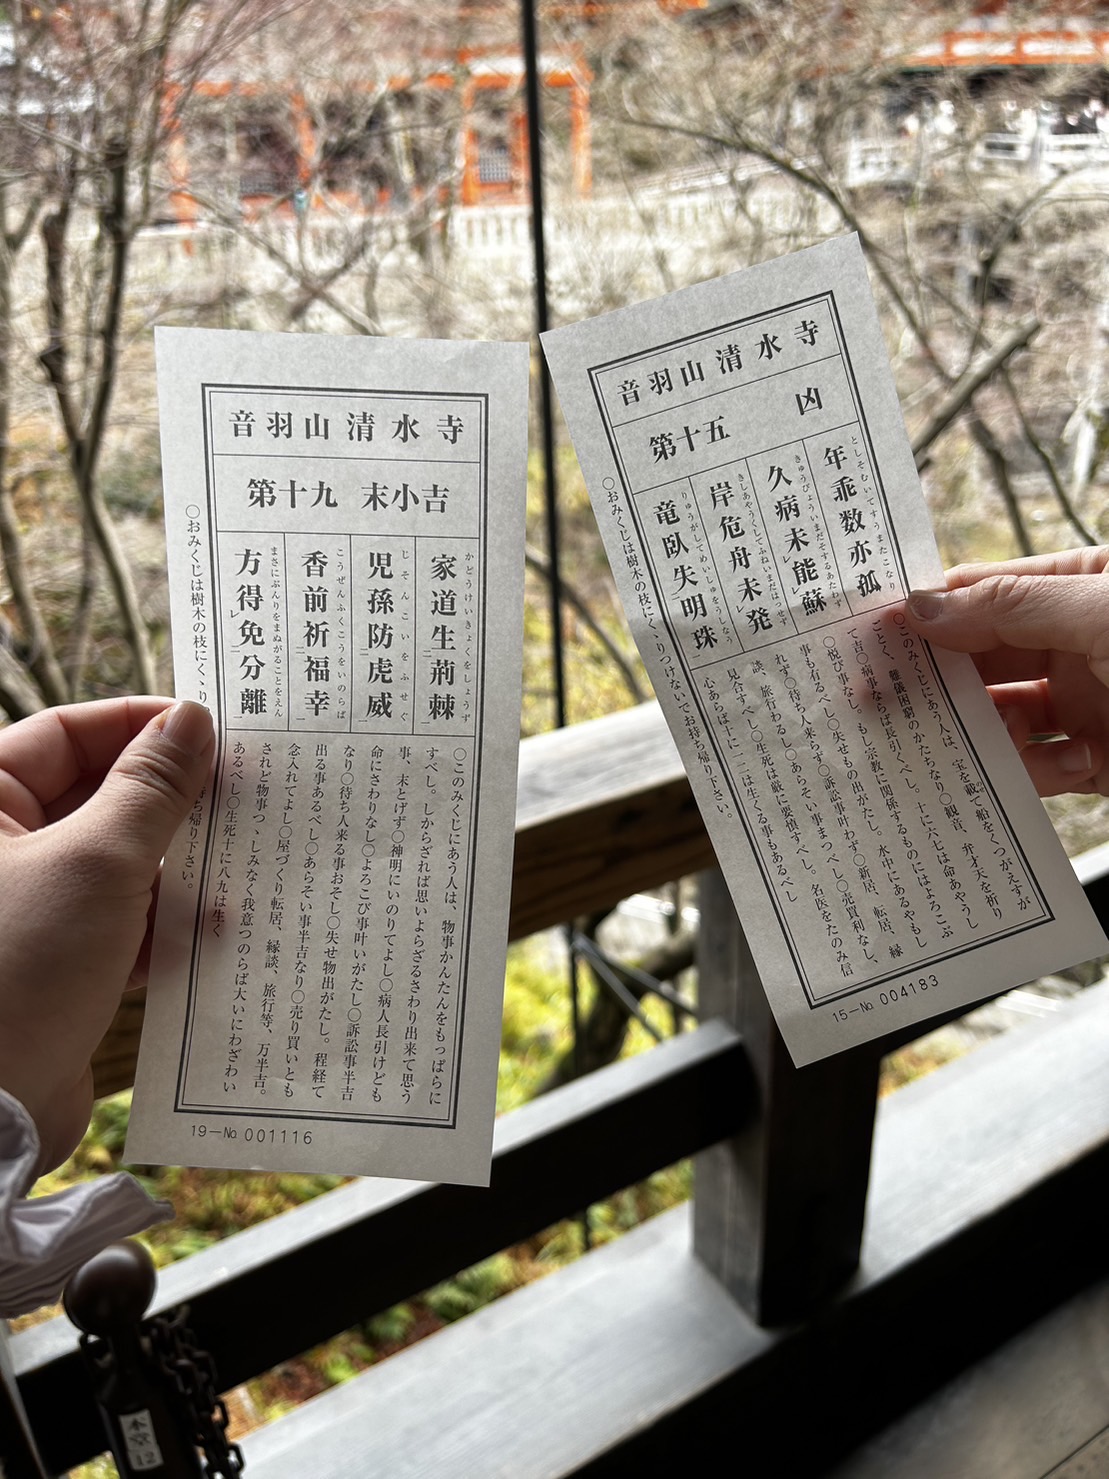 音羽山清水寺
第十九 末小吉
家道生荊棘
かどうけいきょくをしょうず
児孫防虎威
じそんこいをふせぐ
香前祈福幸
こうぜんふくこうをいのらば
方得免分離
まさにぶんりをまぬがることをえん
〇このみくじにあう人は、物事かんたんをもっぱらに
すべし。しからざれば思いよらざるさわり出来て思う
事、末とげず〇神明にいのりてよし〇病人長引けども
命にさわりなし〇よろこび事叶いがたし〇訴訟事半吉
なり〇待ち人来る事おそし〇失せ物出がたし。程経て
出る事あるべし〇あらそい事半吉なり〇売り買いとも
念入れてよし〇屋づくり転居、縁談、旅行等、万半吉。
されど物事つゝしみなく我意つのらば大いにわざわい
あるべし〇生死十に八九は生く
〇おみくじは樹木の枝にくゝり
ち帰り下さい。
19—№ 001116
音羽山清水寺
第十五 凶
年乖数亦孤
としそむいてすうまたこなり
久病未能蘇
きゅうびょういまだそするあたわず
岸危舟未発
きしあやうくしてふねいまだはっせず
竜臥失明珠
りゅうがしてめいしゅをうしなう
〇このみくじにあう人は、宝を載て船をくつがえすが
ごとく、難儀困窮のかたちなり〇観音、弁才天を祈り
て吉〇病事ならば長引くべし。十に六七は命あやうし
〇悦び事なし。もし宗教に関係するものにはよろこぶ
事も有るべし〇失せもの出がたし。水中にあるやもし
れず〇待ち人来らず〇訴訟事叶わず〇新居、転居、縁
談、旅行わるし〇あらそい事まつべし〇売買利なし、
見合すべし〇生死は厳に要慎すべし。名医をたのみ信
心あらば十に一二は生くる事もあるべし
〇おみくじは樹木の枝にくゝりつけないでお持ち帰り下さい。
15—№ 004183
本堂
12